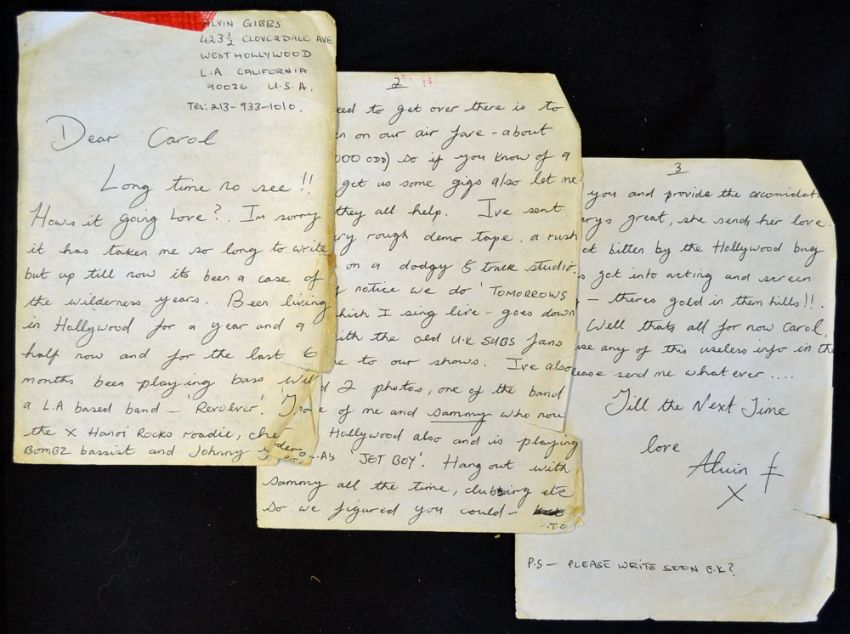 ALVIN GIBBS
423½ CLOVERDALE AVE
WEST HOLLYWOOD
L.A. CALIFORNIA
90036 U.S.A.
TEL: 213-933-1010.
Dear Carol
Long time no see!!
Hows it going Love?. Im sorry
it has taken me so long to write
but up till now its been a case of
the wilderness years. Been living
in Hollywood for a year and a
half now and for the last 6
months been playing bass with
a L.A based band - 'Revolver'.
the X Hanoi Rocks roadie,
BOMBZ bassist and Johnny
2
need to get over there is to
on our air fare - about
000 ODD) so if you know of a
get us some gigs also let me
they all help. Ive sent
very rough demo tape, a rush
on a dodgy 5 track studio
notice we do 'TOMORROWS
which I sing live - goes down
with the old U.K SUBS fans
to our shows. Ive also
2 photos, one of the band
one of me and Sammy who now
Hollywood also and is playing
'JET BOY'. Hang out with
Sammy all the time, clubbing etc
so we figured you could -
P.T.O.
3
you and provide the accomidat
great, she sends her love.
bitten by the Hollywood bug
got into acting and screen
- theres gold in them hills!!.
Well thats all for now Carol,
use any of this useless info in the
please send me what ever ....
Till the Next Time
love
Alvin
X
P.S - PLEASE WRITE SOON O.K?